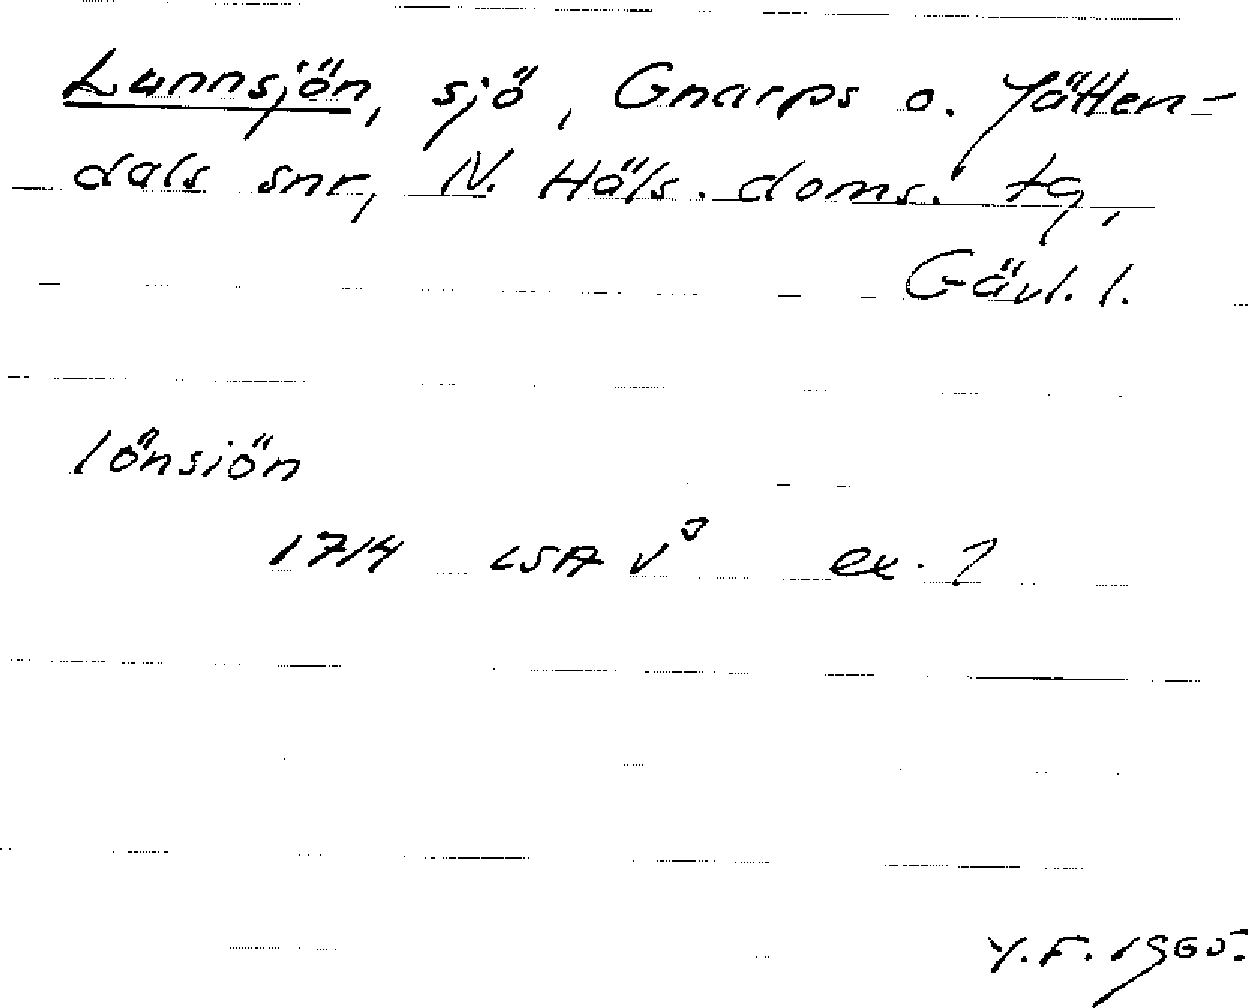 Lunnsjön, sjö, Gnarps o. Jätten-
dals snr, N. Häls. doms. tg,
Gävl. l.
lönsiön
1714 LSA V³ ex. ?
Y.F. 1965.